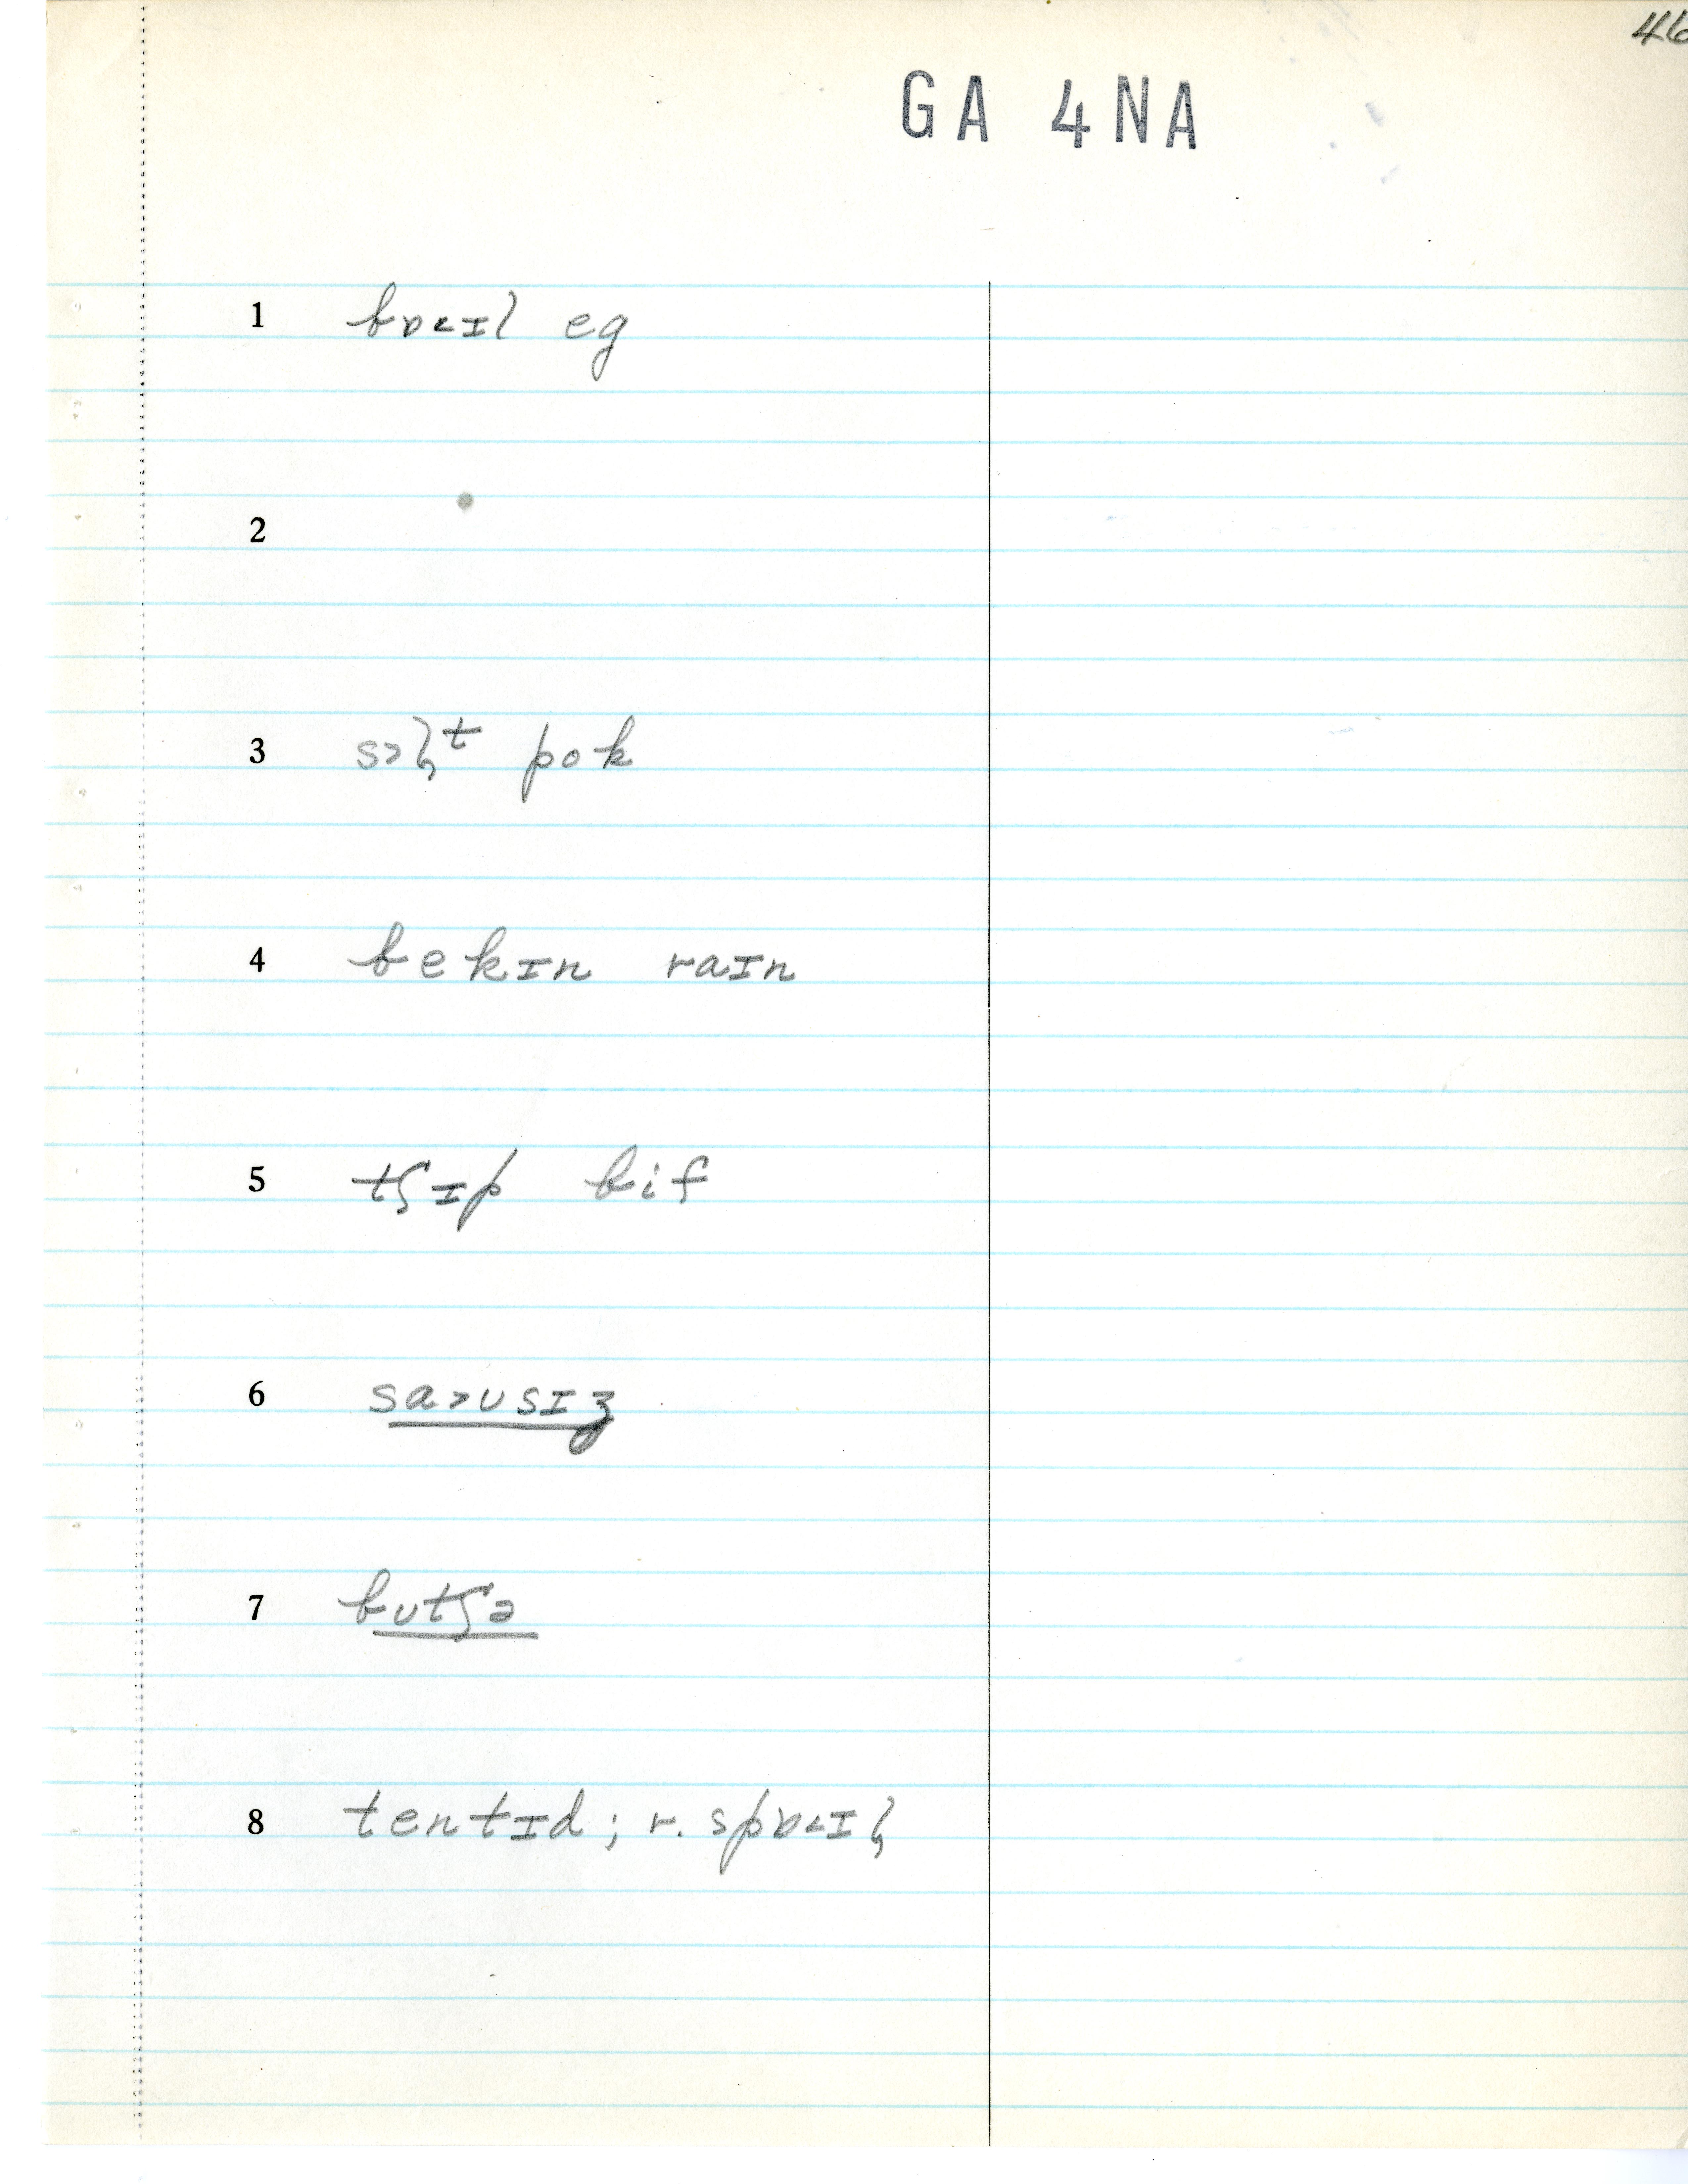 46
GA 4NA
1 bɒ˂ɪl eg
2
3 sɔɫ̩ᵗ pok
4 bekɪn raɪn
5 tʃɪp bif
6 sa˃ʊsɪʒ
7 bʊtʃə
8 tentɪd; r. spɒ˂ɪɫ